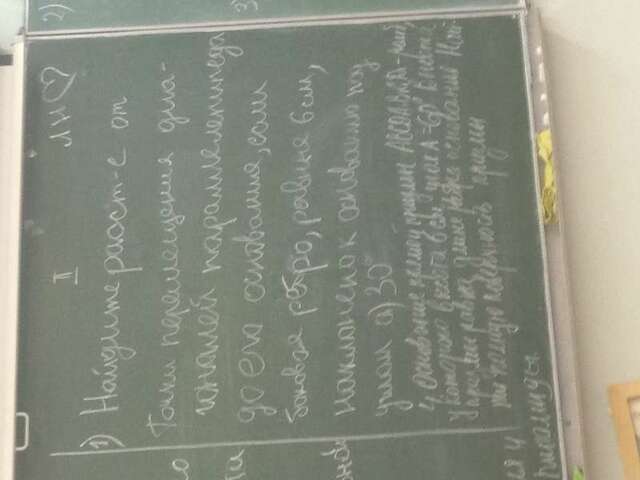 II
ЛН♡
2)
1) Найдите расст-е от
точки перемещения диа-
гоналей параллелепипеда
до его основания, если
боковая ребро, равная 6 см,
наклонено к основанию под
углом а) 30°
4. Основание прямой призмы ABCDA₁B₁C₁D₁ - ромб,
у которого высота 6 см, угол A = 60° Высота
призмы равна длине ребра основания Най-
ти полную поверхность призмы
3)
та
ной
пирамиды